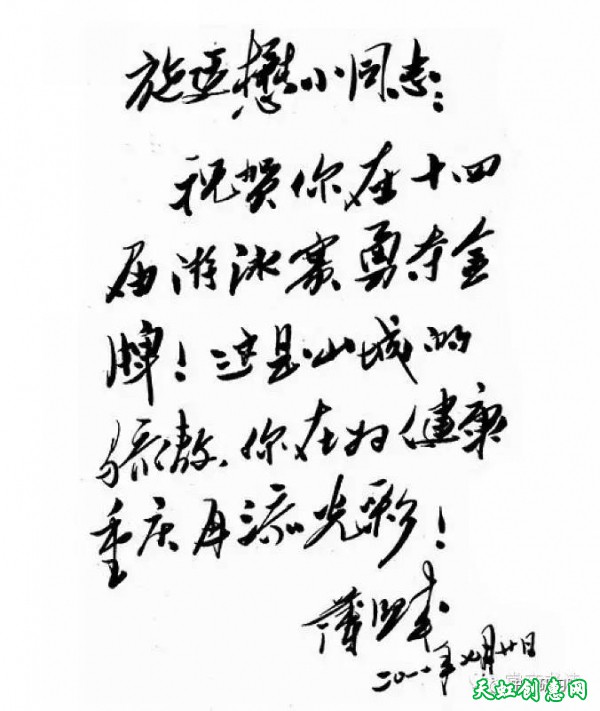 施廷懋小同志：
祝贺你在十四
届游泳赛勇夺金
牌！这是山城的
骄傲、你在为健康
重庆再添光彩！
薄熙来
二〇一一年七月廿日
天虹创意网